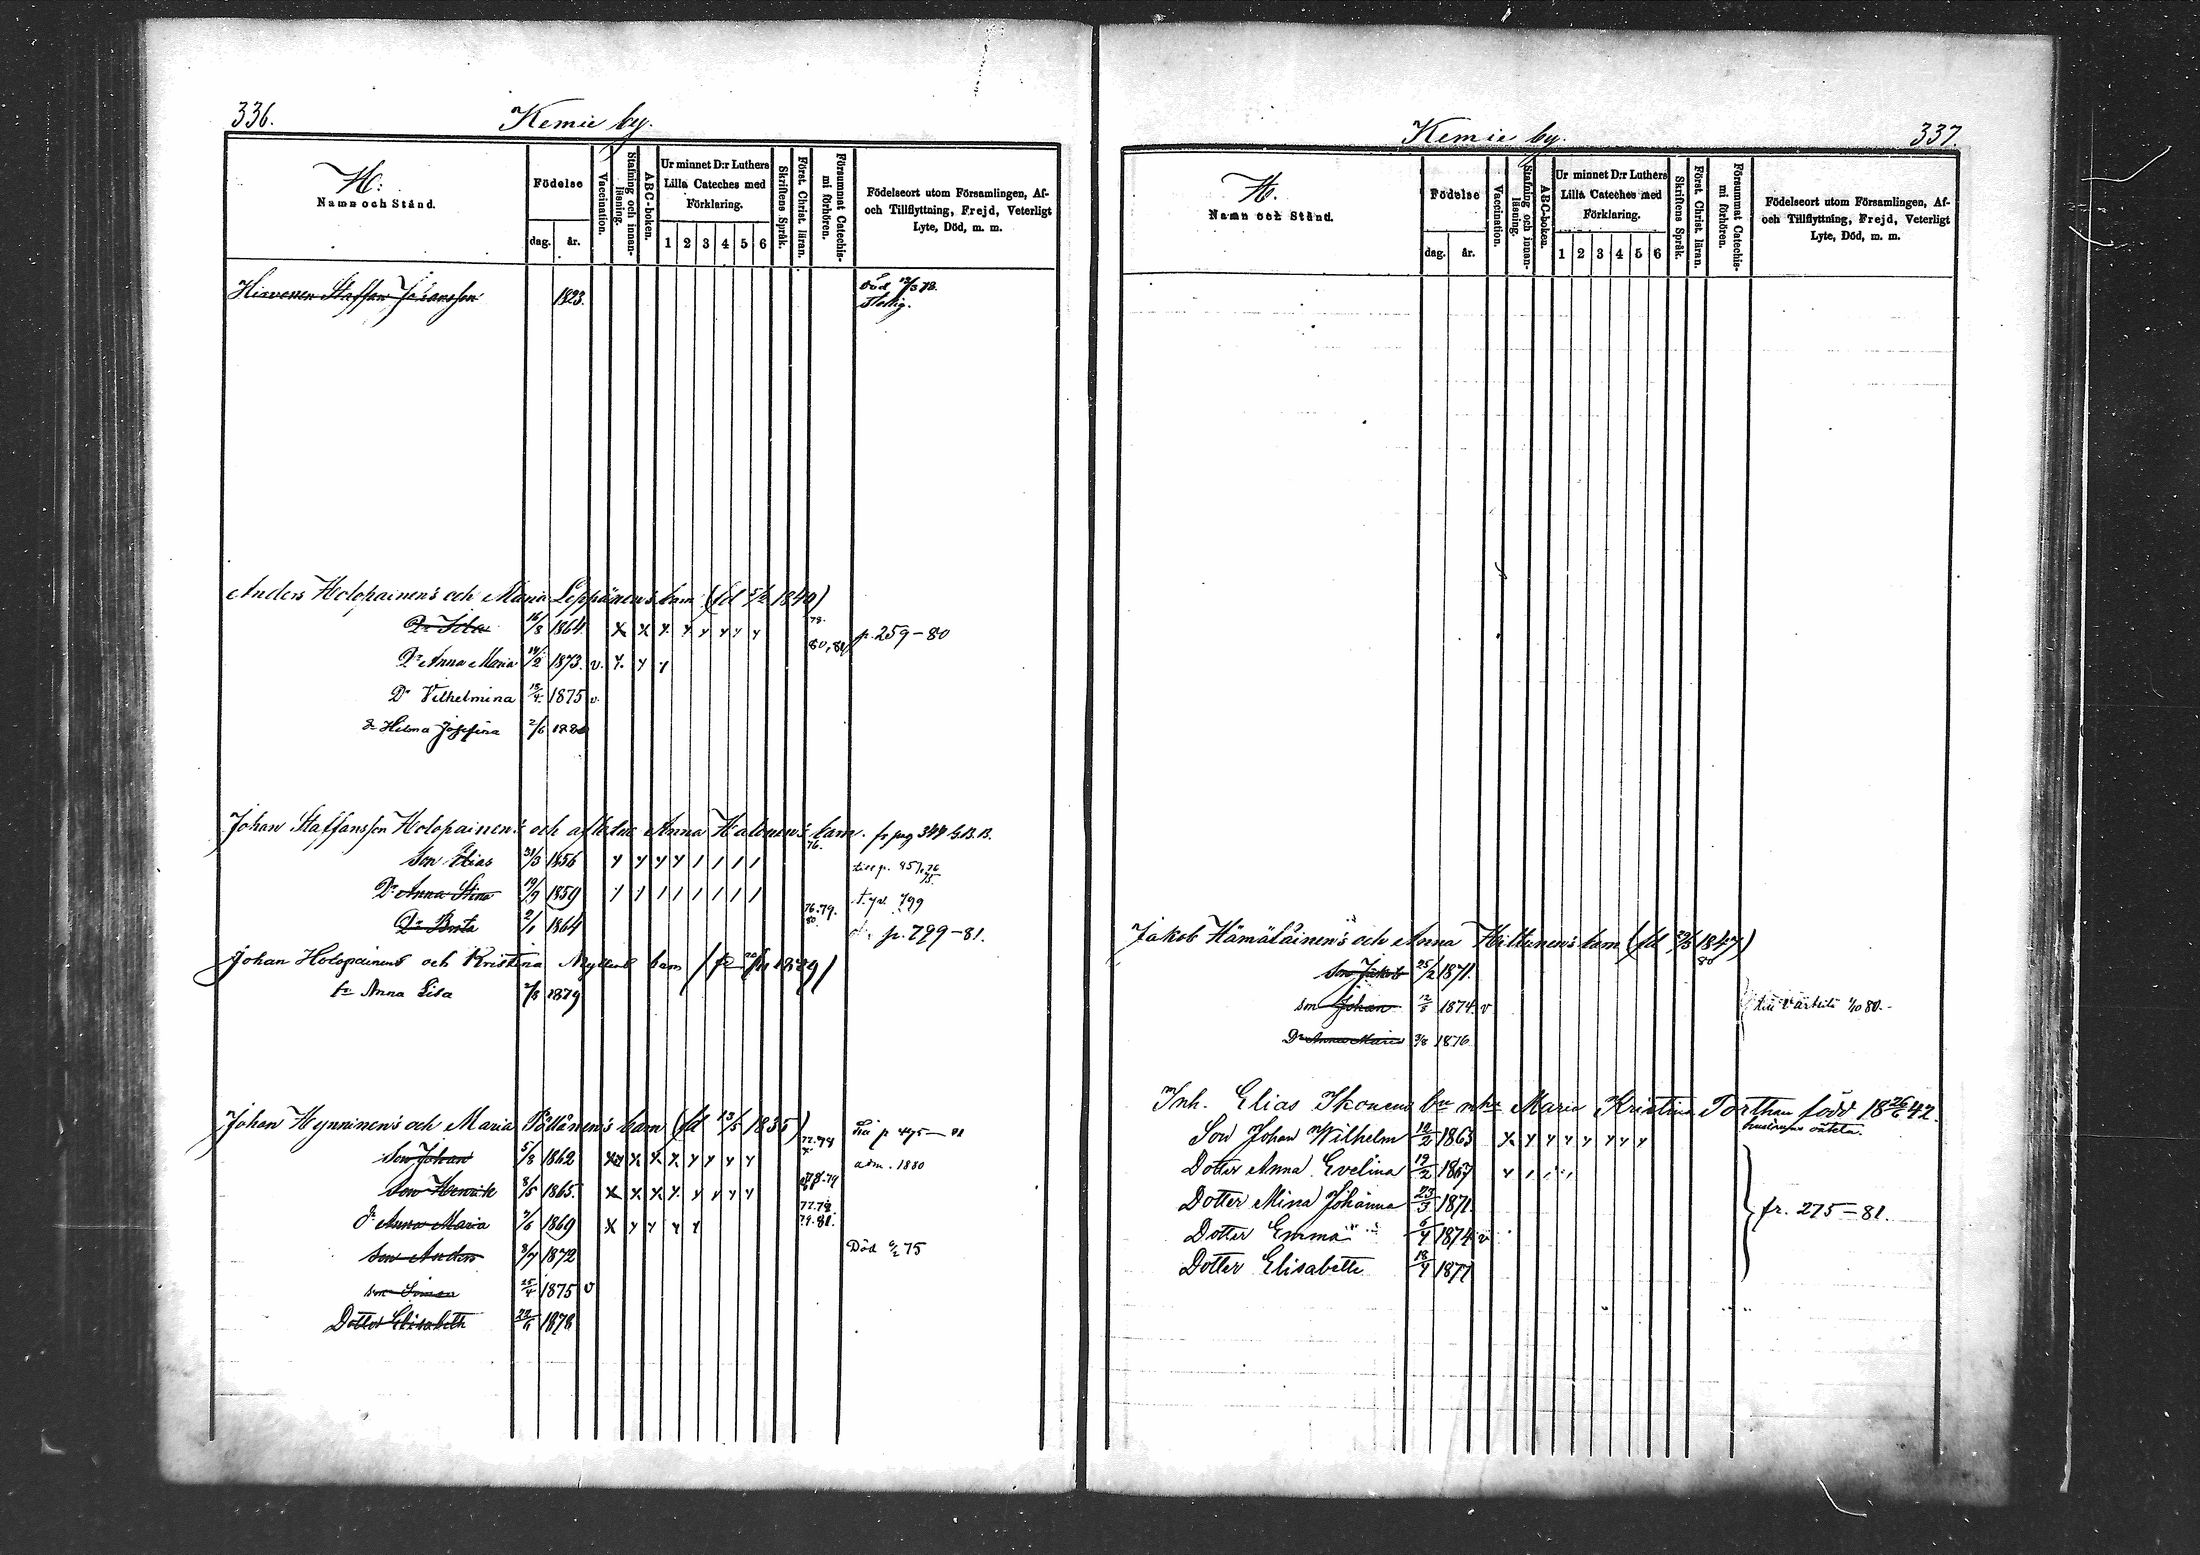 336. Kemie by.
H:
Namn och Stånd.
Födelse
dag. år.
Vaccination.
Stafning och innanläsning.
ABC-boken.
Ur minnet D:r Luthers
Lilla Cateches med
Förklaring.
1 2 3 4 5 6
Skriftens Språk.
Först. Christ. läran.
Försummat Catechis-
mi förhören.
Födelseort utom Församlingen, Af-
och Tillflyttning, Frejd, Veterligt
Lyte, Död, m. m.
Hirvonen Staffan Johansson 1823. Död 13/3 78.
Anders Holopainen's och Maria Leppänen's barn (fd 5/2 1840)
Dr 16/8 1864 x x y y y y y y 78. 80, 81 p. 259-80
Dr Anna Maria 14/2 1873. v. y. y y
Dr Vilhelmina 13/4 1875 v.
dr Helena Josefina 2/6 1880
Johan Staffansson Holopainen's och Anna Halonen's barn. fr pag 344
Son Elias 31/3 1856 y y y y / / / / 76. till p. 857, 76/75
Dr Anna Stina 19/9 1859 / / / / / / / / t. p. 799
Dr Brita 2/1 1864 76. 79. 80. p. 799-81.
Johan Holopainens och Kristina barn
dr Anna Lisa 2/8 1879
Johan Hynninen's och Maria Pöllänen's barn (fd 13/5 1835)
Son Johan 5/8 1862 x x x x y y y y 77.78 Lia p 475-81
adm. 1880
Son Henrik 8/5 1865. x x x y y y y y
dr Anna Maria 2/6 1869 x y y y y 77.78 79.81.
Son Anders 3/7 1872 Död 6/2 75
son Simon 25/4 1875 v
Dotter Elisabeth 22/6 1878
Kemie by. 337.
H.
Namn och Stånd.
Födelse
dag. år.
Vaccination.
Stafning och innanläsning.
ABC-boken.
Ur minnet D:r Luthers
Lilla Cateches med
Förklaring.
1 2 3 4 5 6
Skriftens Språk.
Först. Christ. läran.
Försummat Catechis-
mi förhören.
Födelseort utom Församlingen, Af-
och Tillflyttning, Frejd, Veterligt
Lyte, Död, m. m.
Jakob Hämäläinen's och Anna Hiltunen's barn (fd 29/5 1847)
Son Jakob 25/2 1871. 80
son Johan 12/8 1874. v till Värtsilä 1/10 80.
Dr Anna Maria 3/8 1876
Inh. Elias Ikonens Maria Kristina Torthan född 18 26/6 42.
Son Johan Wilhelm 12/2 1863 x y y y y y y y
Dotter Anna Evelina 19/2 1867 y / / / /
Dotter Mina Johanna 23/3 1871.
Dotter Emma 6/4 1874 v fr. 275-81.
Dotter Elisabette 18/4 1877